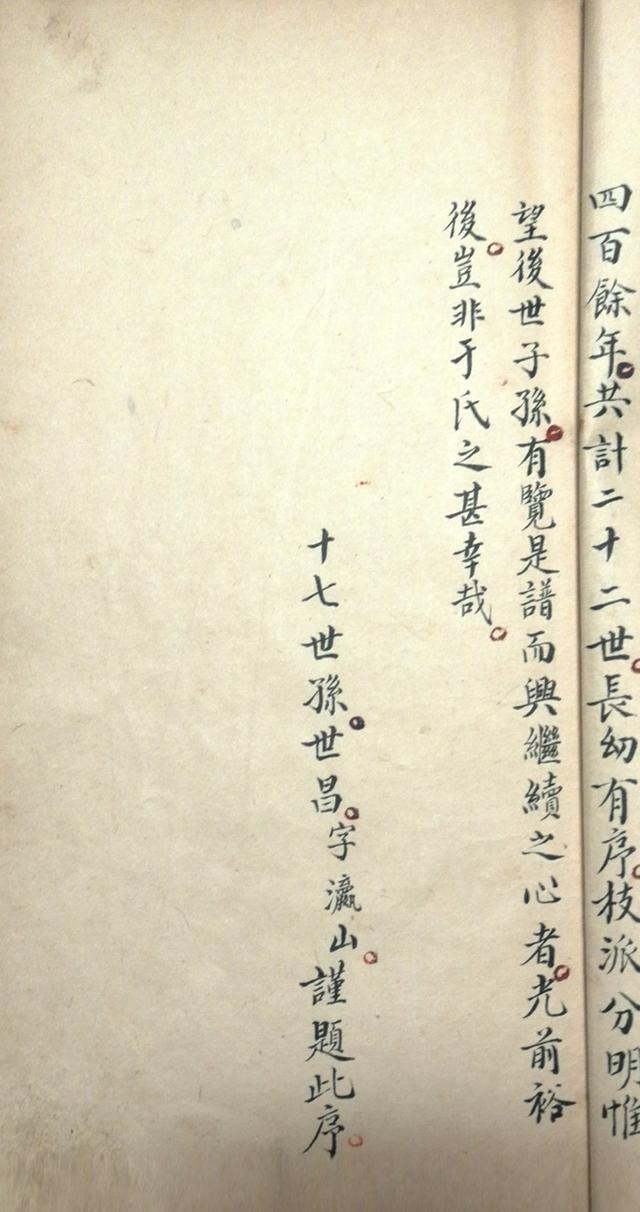 四百餘年共計二十二世長幼有序枝派分明惟
望後世子孫有覽是譜而興繼續之心者光前裕
後豈非于氏之甚幸哉
十七世孫世昌字瀛山謹題此序